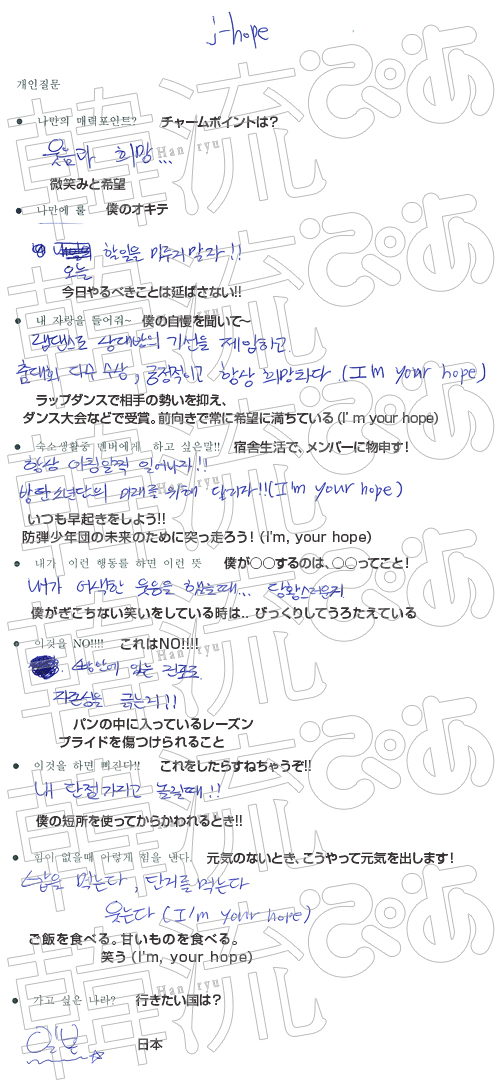 j-hope
개인질문
● 나만의 매력포인트? チャームポイントは？
웃음과 희망...
微笑みと希望
● 나만에 룰 僕のオキテ
오늘 할일을 미루지말자!!
今日やるべきことは延ばさない!!
● 내 자랑을 들어줘~ 僕の自慢を聞いて〜
랩댄스로 상대방의 기선을 제압하고
춤대회 다수 수상, 긍정적이고 항상 희망차다 (I'm your hope)
ラップダンスで相手の勢いを抑え、
ダンス大会などで受賞。前向きで常に希望に満ちている (I' m your hope)
● 숙소생활중 멤버에게 하고 싶은말!! 宿舎生活で、メンバーに物申す！
항상 아침일찍 일어나자!!
방탄소년단의 미래를 위해 달리자!!(I'm your hope)
いつも早起きをしよう!!
防弾少年団の未来のために突っ走ろう！ (I'm, your hope)
● 내가 이런 행동를 하면 이런 뜻 僕が○○するのは、○○ってこと！
내가 어색한 웃음을 했을때... 당황스러운거
僕がぎこちない笑いをしている時は... びっくりしてうろたえている
● 이것을 NO!!!! これはNO!!!!
빵안에 있는 건포도
자존심을 긁는거!!
パンの中に入っているレーズン
プライドを傷つけられること
● 이것을 하면 삐진다!! これをしたらすねちゃうぞ!!
내 단점가지고 놀릴때!!
僕の短所を使ってからかわれるとき!!
● 힘이 없을때 이렇게 힘을 낸다. 元気のないとき、こうやって元気を出します！
밥을 먹는다, 단거를 먹는다
웃는다 (I'm your hope)
ご飯を食べる。甘いものを食べる。
笑う (I'm, your hope)
● 가고 싶은 나라? 行きたい国は？
일본 ☆
日本
韓流ぴあ
Han ryu